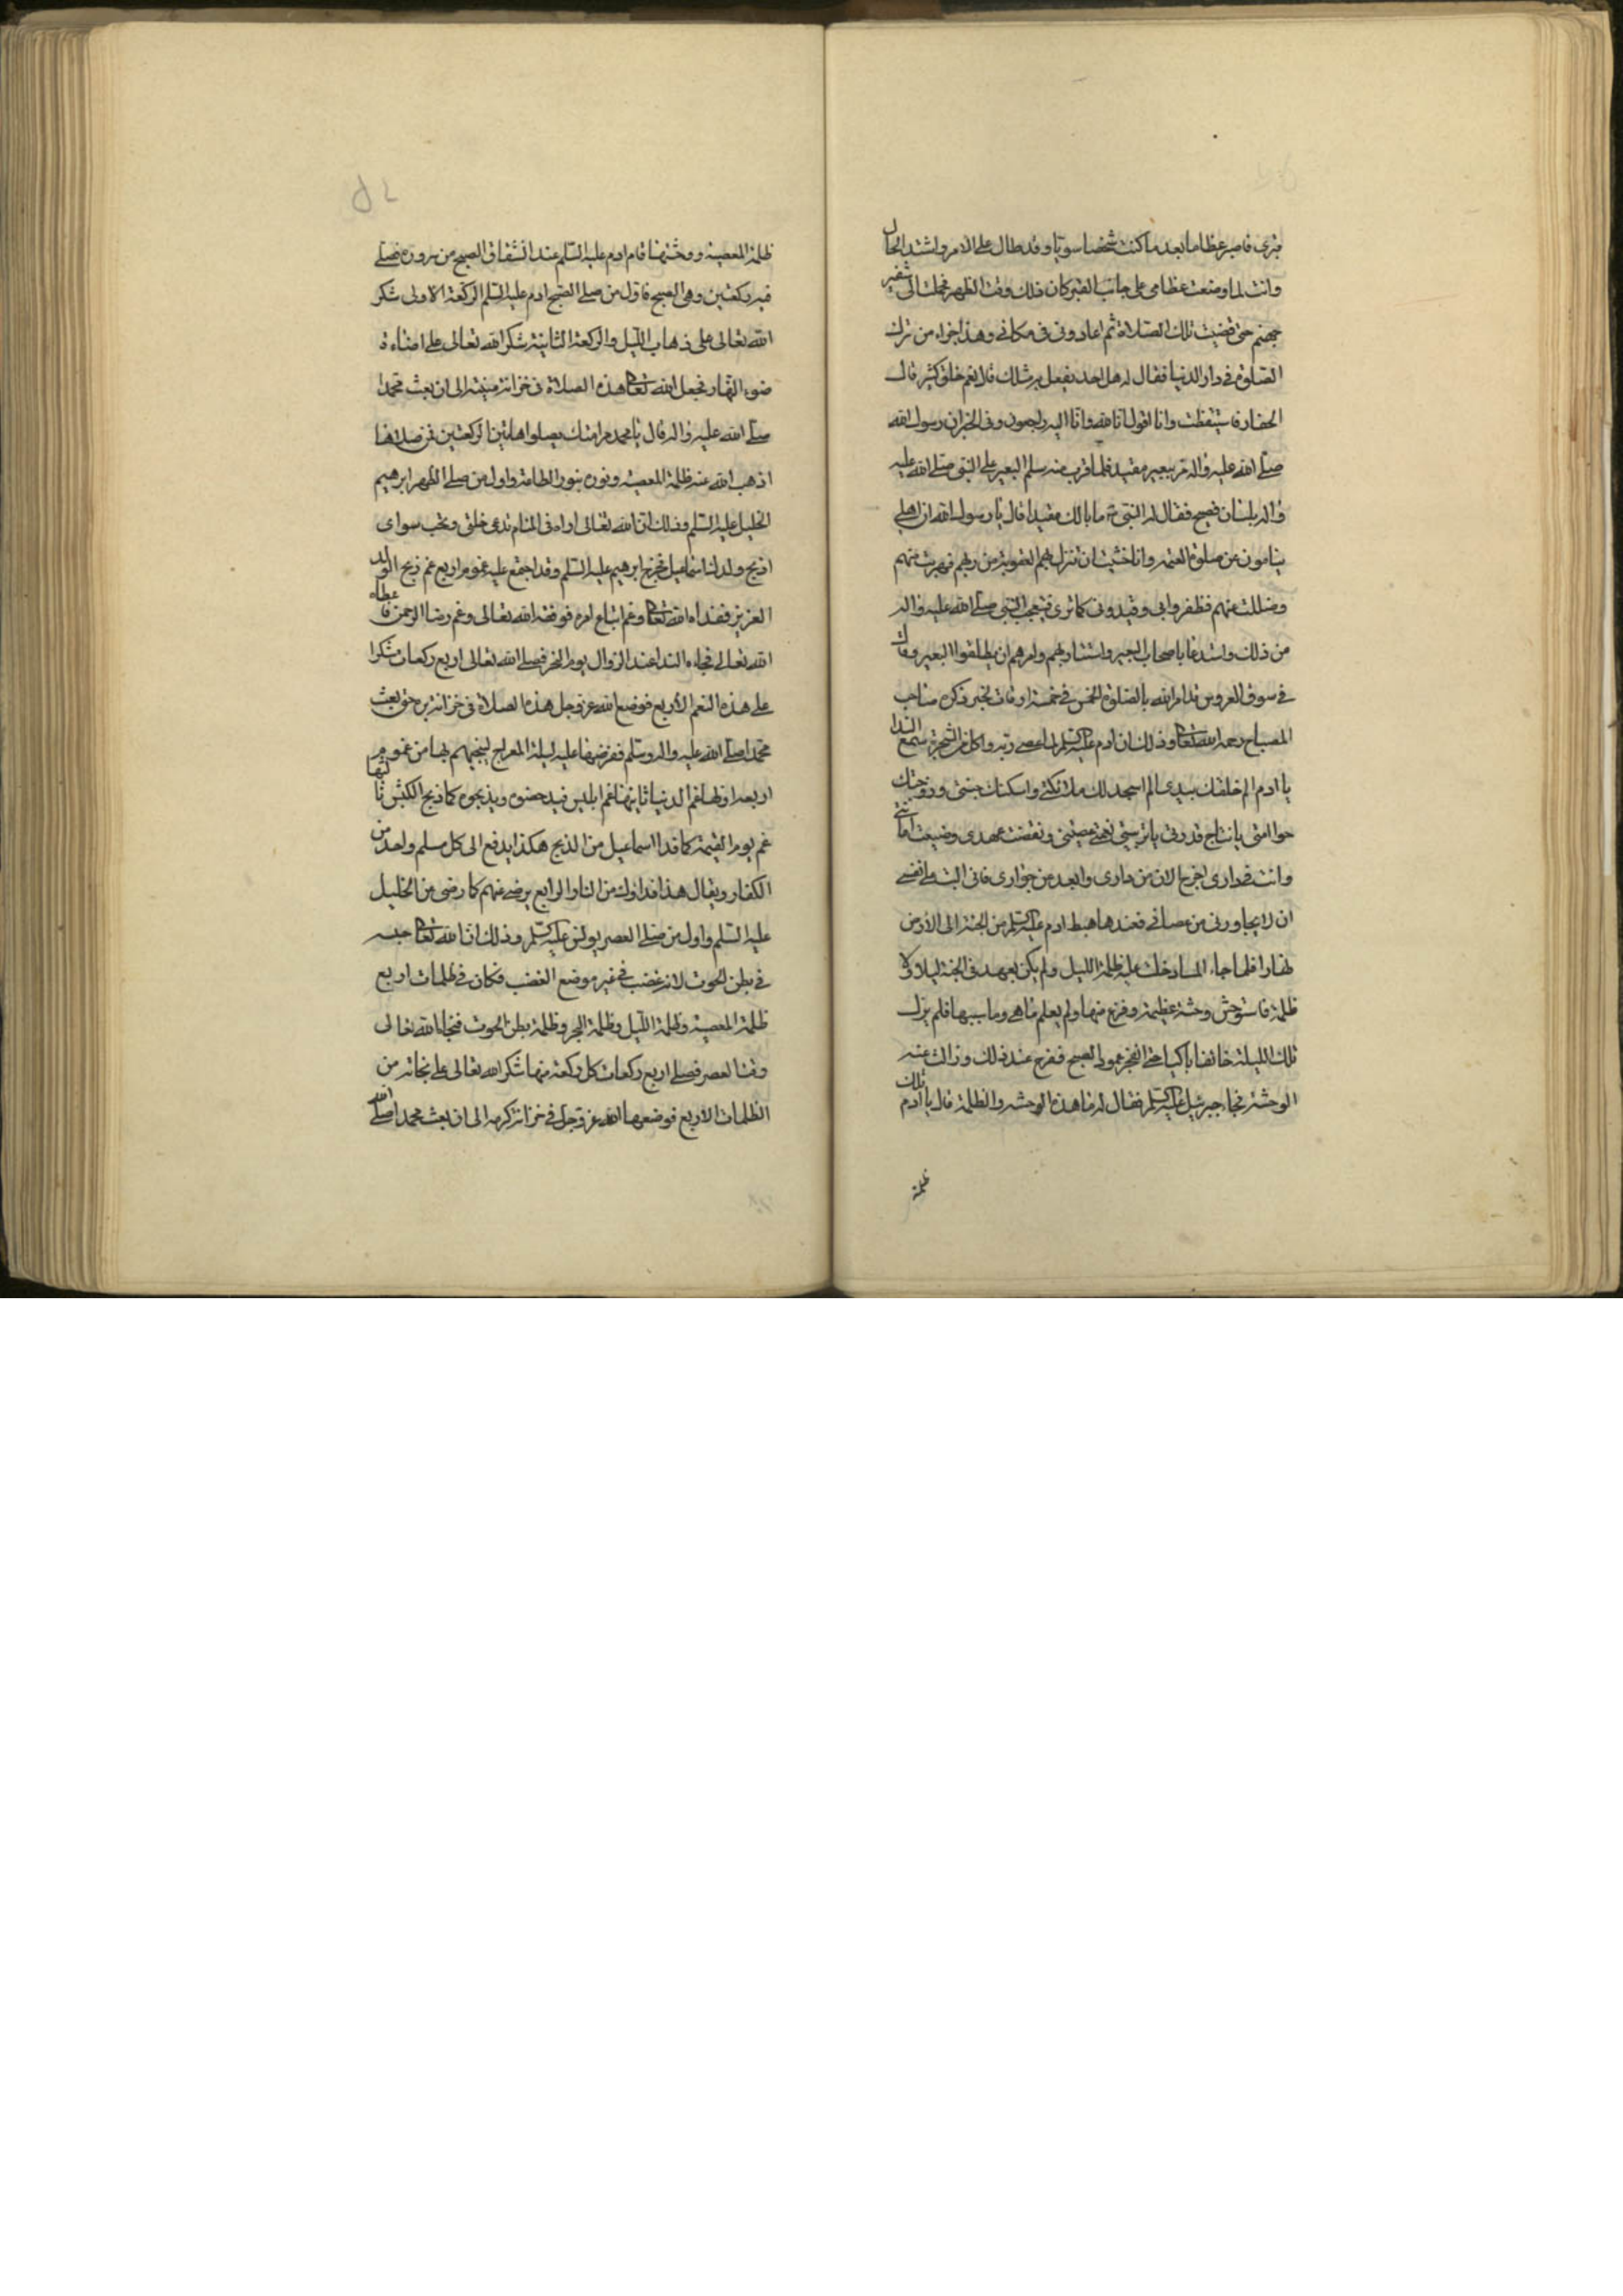 قبرى فاصير عظاما بعد ما كنت شخصا سويا وقد طال على الامر واشتد الحال
وانت لما وضعت عظامى على جانب القبر كان ذلك وقت الظهر فحملت الى شفير
جهنم حتى قضيت تلك الصلاة ثم اعادونى فى مكانى وهذا جزاء من ترك
الصلوة فى دار الدنيا فقال له هل احد يفعل به مثلك قال نعم خلق كثير قال
الحفار فاستيقظت وانا اقول انا لله وانا اليه راجعون وفى الخبر ان رسول الله
صلى الله عليه واله مر ببعير مقيد فلما قرب منه سلم البعير على النبى صلى الله عليه
واله بلسان فصيح فقال له النبى ص ما بالك مقيدا قال يا رسول الله ان اهلى
ينامون عن صلوة العتمه وانا خشيت ان تنزل بهم العقوبة من ربهم فهربت منهم
وضللت عنهم فظفروا بى وقيدونى كما ترى فتعجب النبى صلى الله عليه واله
من ذلك واستدعا باصحاب البعير واستتابهم وامرهم ان يطلقوا البعير وقال
فى سوق العروس قد امر الله بالصلوة الخمس فى خمسة اوقات لخبر ذكره صاحب
المصباح رحمه الله تعالى وذلك ان ادم عليه السلم لما عصى ربه واكل من الشجرة سمع الندا
يا ادم الم اخلقك بيدى الم اسجد لك ملائكتى واسكنتك جنتى وزوجتك
حوا امتى يا نتاج قدرتى يا تربيتى نهيتك عصيتنى ونقضت عهدى وضيعت امانتى
وانت فى دارى اخرج الان من دارى وابعد من جوارى فانى اليت على نفسى
ان لا يجاورنى من عصانى فعندها هبط ادم عليه السلم من الجنة الى الارض
نهارا فلما جاء المسا دخلت عليه ظلمة الليل ولم يكن يعهد فى الجنة ليلا ولا
ظلمة فاستوحش وحشة عظيمة وفزع منها ولم يعلم ما هى وما سببها فلم يزل
تلك الليلة خائفا باكيا حتى انفجر عمود الصبح ففرح عند ذلك وزالت عنه
الوحشة فجاء جبرئيل عليه السلم فقال له ما هذه الوحشه والظلمة قال يا ادم تلك
ظلمة
ظلمة المعصية ووحشتها قام ادم عليه السلم عند انشقاق الصبح من سروره فصلى
فيه ركعتين وهى الصبح فاول من صلى الصبح ادم عليه السلم الركعة الاولى شكر
الله تعالى على ذهاب الليل والركعة الثانية شكرا لله تعالى على اضاءة
ضوء النهار فجعل الله تعالى هذه الصلاة فى خزانة غيبه الى ان بعث محمدا
صلى الله عليه واله قال يا محمد مر امتك يصلوا هاتين الركعتين فمن صلاهما
اذهب الله عنه ظلمة المعصية ونوره بنور الطاعة واول من صلى الظهر ابرهيم
الخليل عليه السلم وذلك ان الله تعالى اراه فى المنام تدعى خلتى وتحب سواى
اذبح ولدك اسماعيل فخرج ابرهيم عليه السلم وقد اجتمع عليه غموم اربع غم ذبح الولد
العزيز ففداه الله تعالى وغم اتباع امره فوفقه الله تعالى وغم رضا الرحمن فاعطاه
الله تعالى فجاءه الندا عند الزوال يوم النحر فصلى الله تعالى اربع ركعات شكرا
على هذه النعم الاربع فوضع الله عز وجل هذه الصلاة فى خزانة بره حتى بعث
محمدا صلى الله عليه واله وسلم ففرضها عليه ليلة المعراج لينجيهم بها من غموم
اربعه اولها غم الدنيا ثانيها غم ابليس فيدحضوه ويذبحوه كما ذبح الكبش ثالثها
غم يوم القيمة كما فدا اسماعيل من الذبح هكذا يدفع الى كل مسلم واحد من
الكفار ويقال هذا فداؤك من النار الرابع يرضى عنهم كما رضى من الخليل
عليه السلم واول من صلى العصر يونس عليه السلم وذلك ان الله تعالى حبسه
فى بطن الحوت لانه غضب فى غير موضع الغضب فكان فى ظلمات اربع
ظلمة المعصية وظلمة الليل وظلمة البحر وظلمة بطن الحوت فنجاه الله تعالى
وقت العصر فصلى اربع ركعات كل ركعة منها شكرا لله تعالى على نجاته من
الظلمات الاربع فوضعها الله عز وجل فى خزانة كرمه الى ان بعث محمدا صلى الله